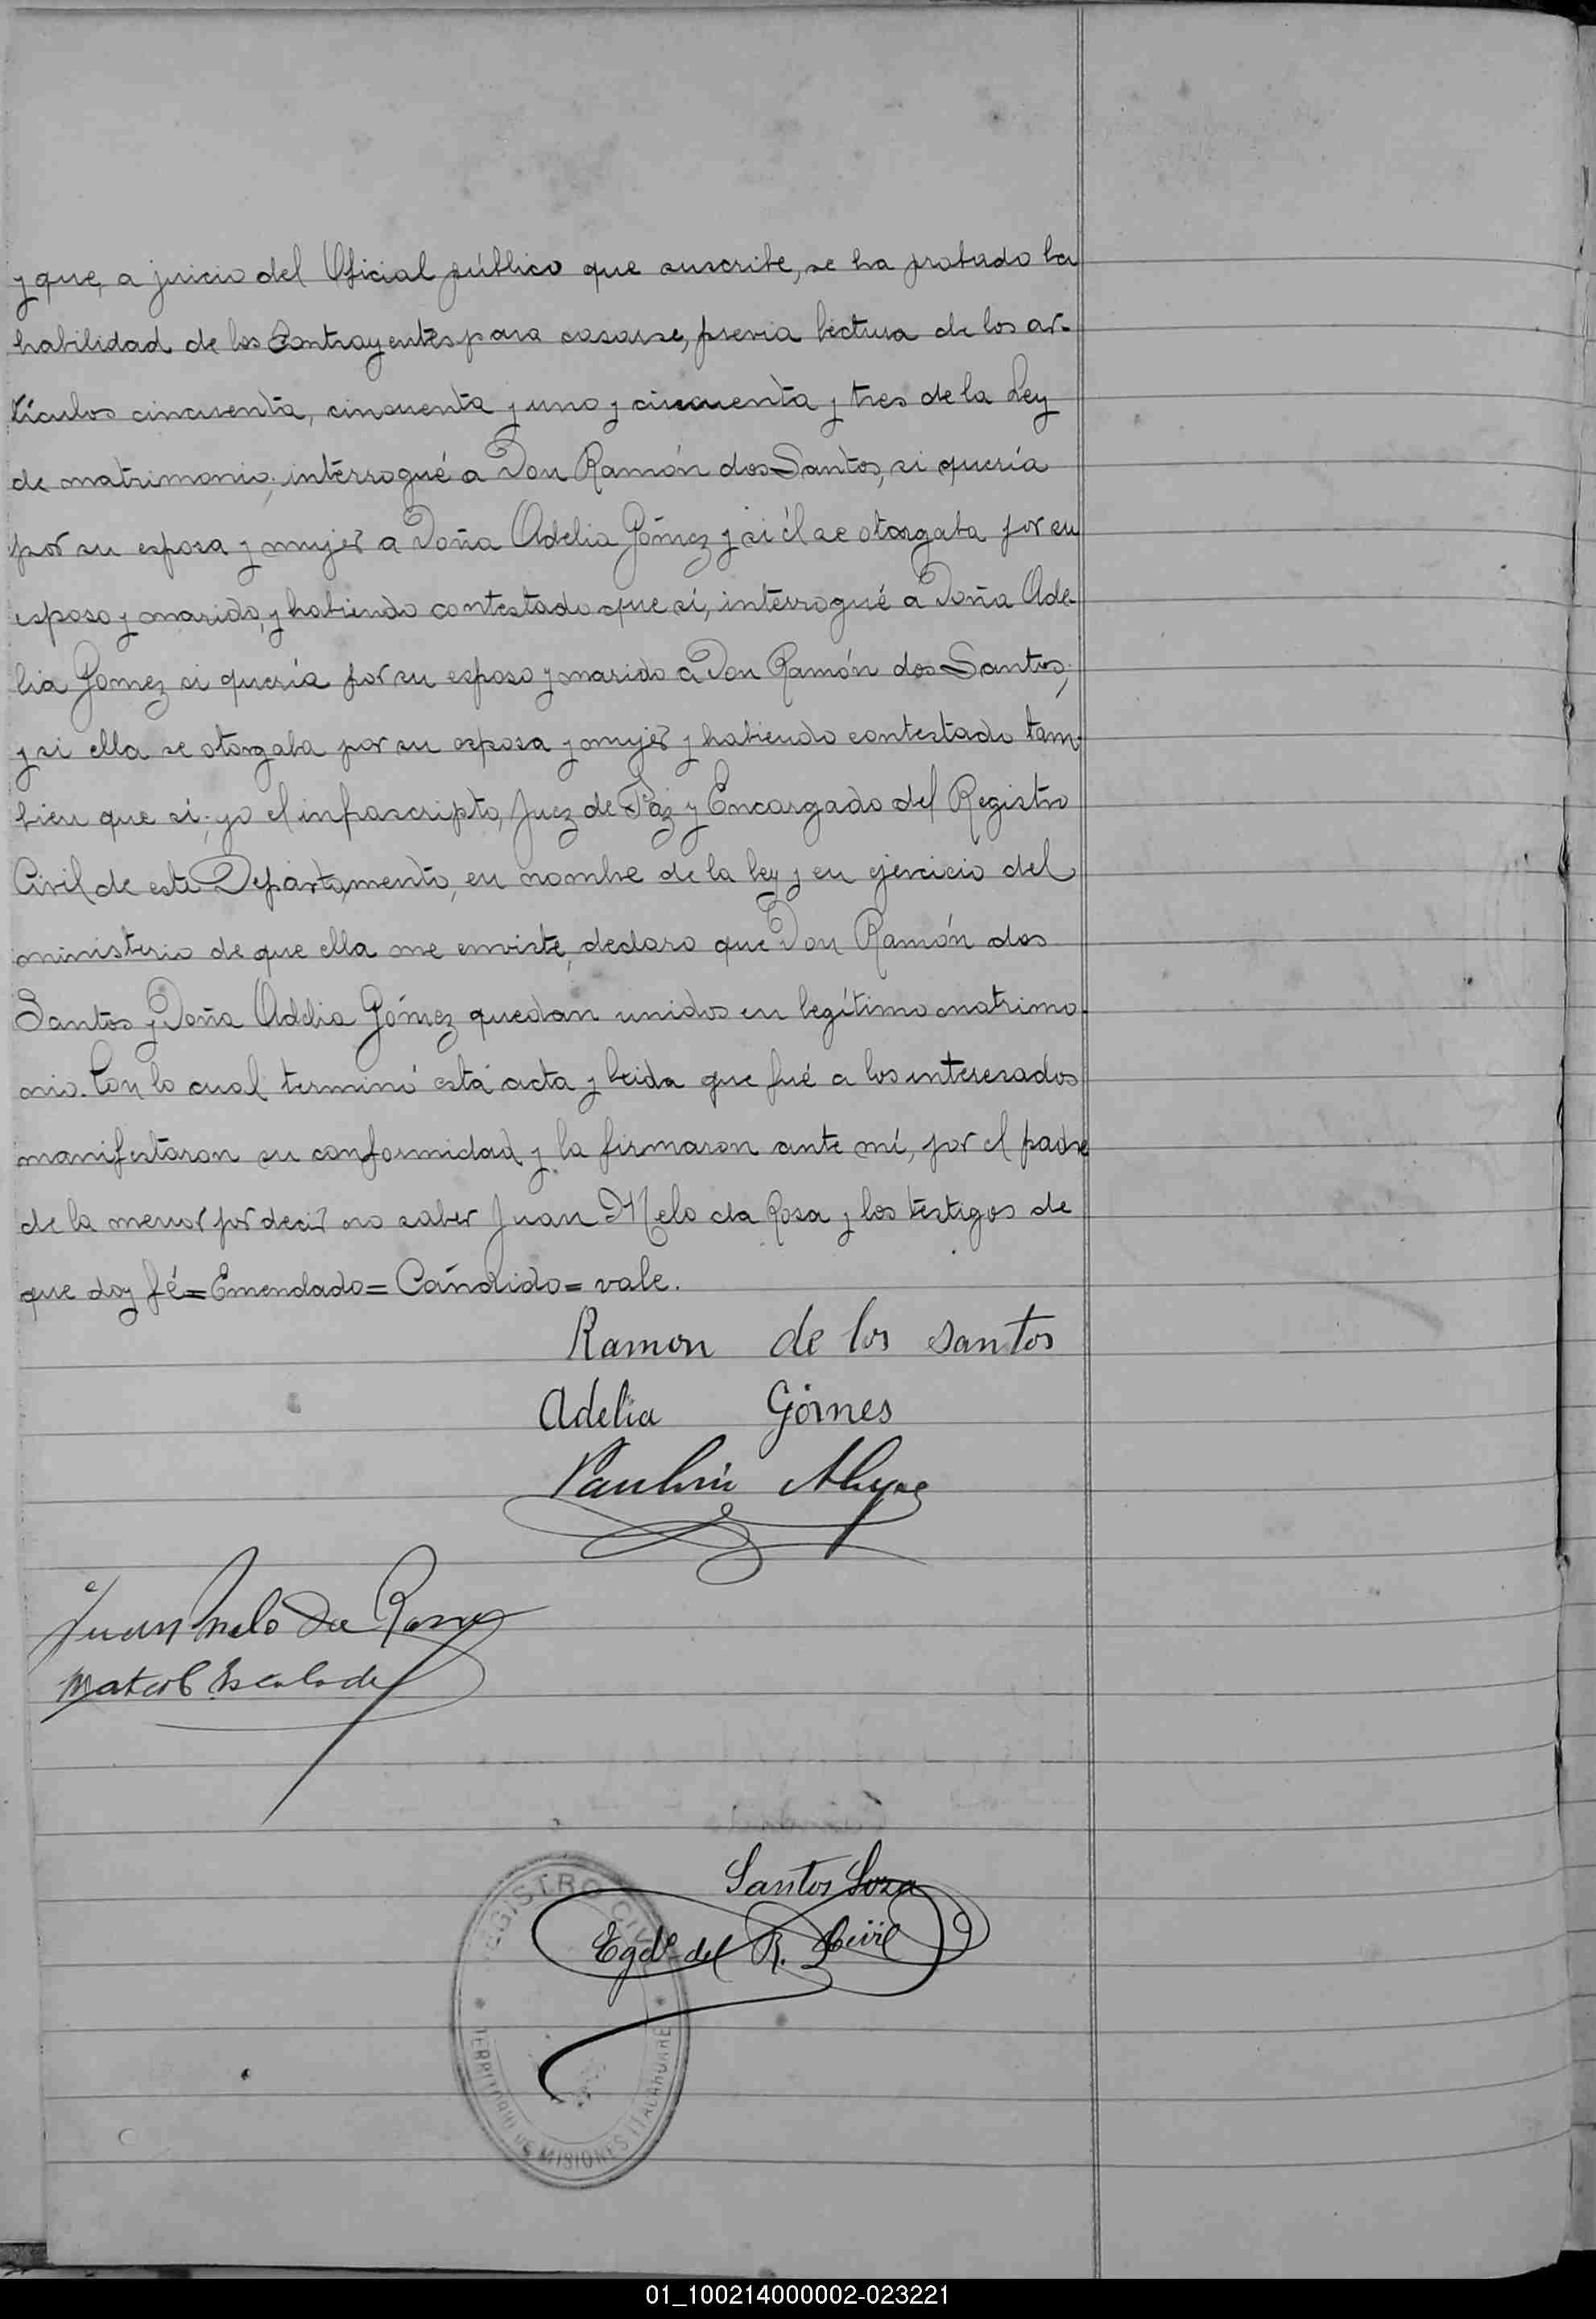 y que, a juicio del Oficial público que suscribe, se ha probado la
habilidad de los Contrayentes para casarse, previa lectura de los ar-
tículos cincuenta, cincuenta y uno y cincuenta y tres de la Ley
de matrimonio, interrogué a Don Ramón dos Santos, si quería
por su esposa y mujer a Doña Adelia Gómez y si él se otorgaba por su
esposo y marido, y habiendo contestado que sí, interrogué a Doña Ade-
lia Gomez si quería por su esposo y marido a Don Ramón dos Santos,
y si ella se otorgaba por su esposa y mujer y habiendo contestado tam-
bien que si; yo el infrascripto, Juez de Paz y Encargado del Registro
Civil de este Departamento, en nombre de la ley y en ejercicio del
ministerio de que ella me enviste, declaro que Don Ramón dos
Santos y Doña Adelia Gómez quedan unidos en legítimo matrimo-
nio. Con lo cual terminó está acta y leida que fué a los interesados
manifestaron su conformidad y la firmaron ante mí, por el padre
de la menor por decir no saber Juan Melo da Rosa y los testigos de
que doy fé = Emendado = Cándido = vale.
Ramon de los santos
Adelia Gómes
Juan Melo Da Rosa
Santos Soza
Egdo del R. Civil
REGISTRO CIVIL
TERRITORIO DE MISIONES ITACARUARE
01_100214000002-023221